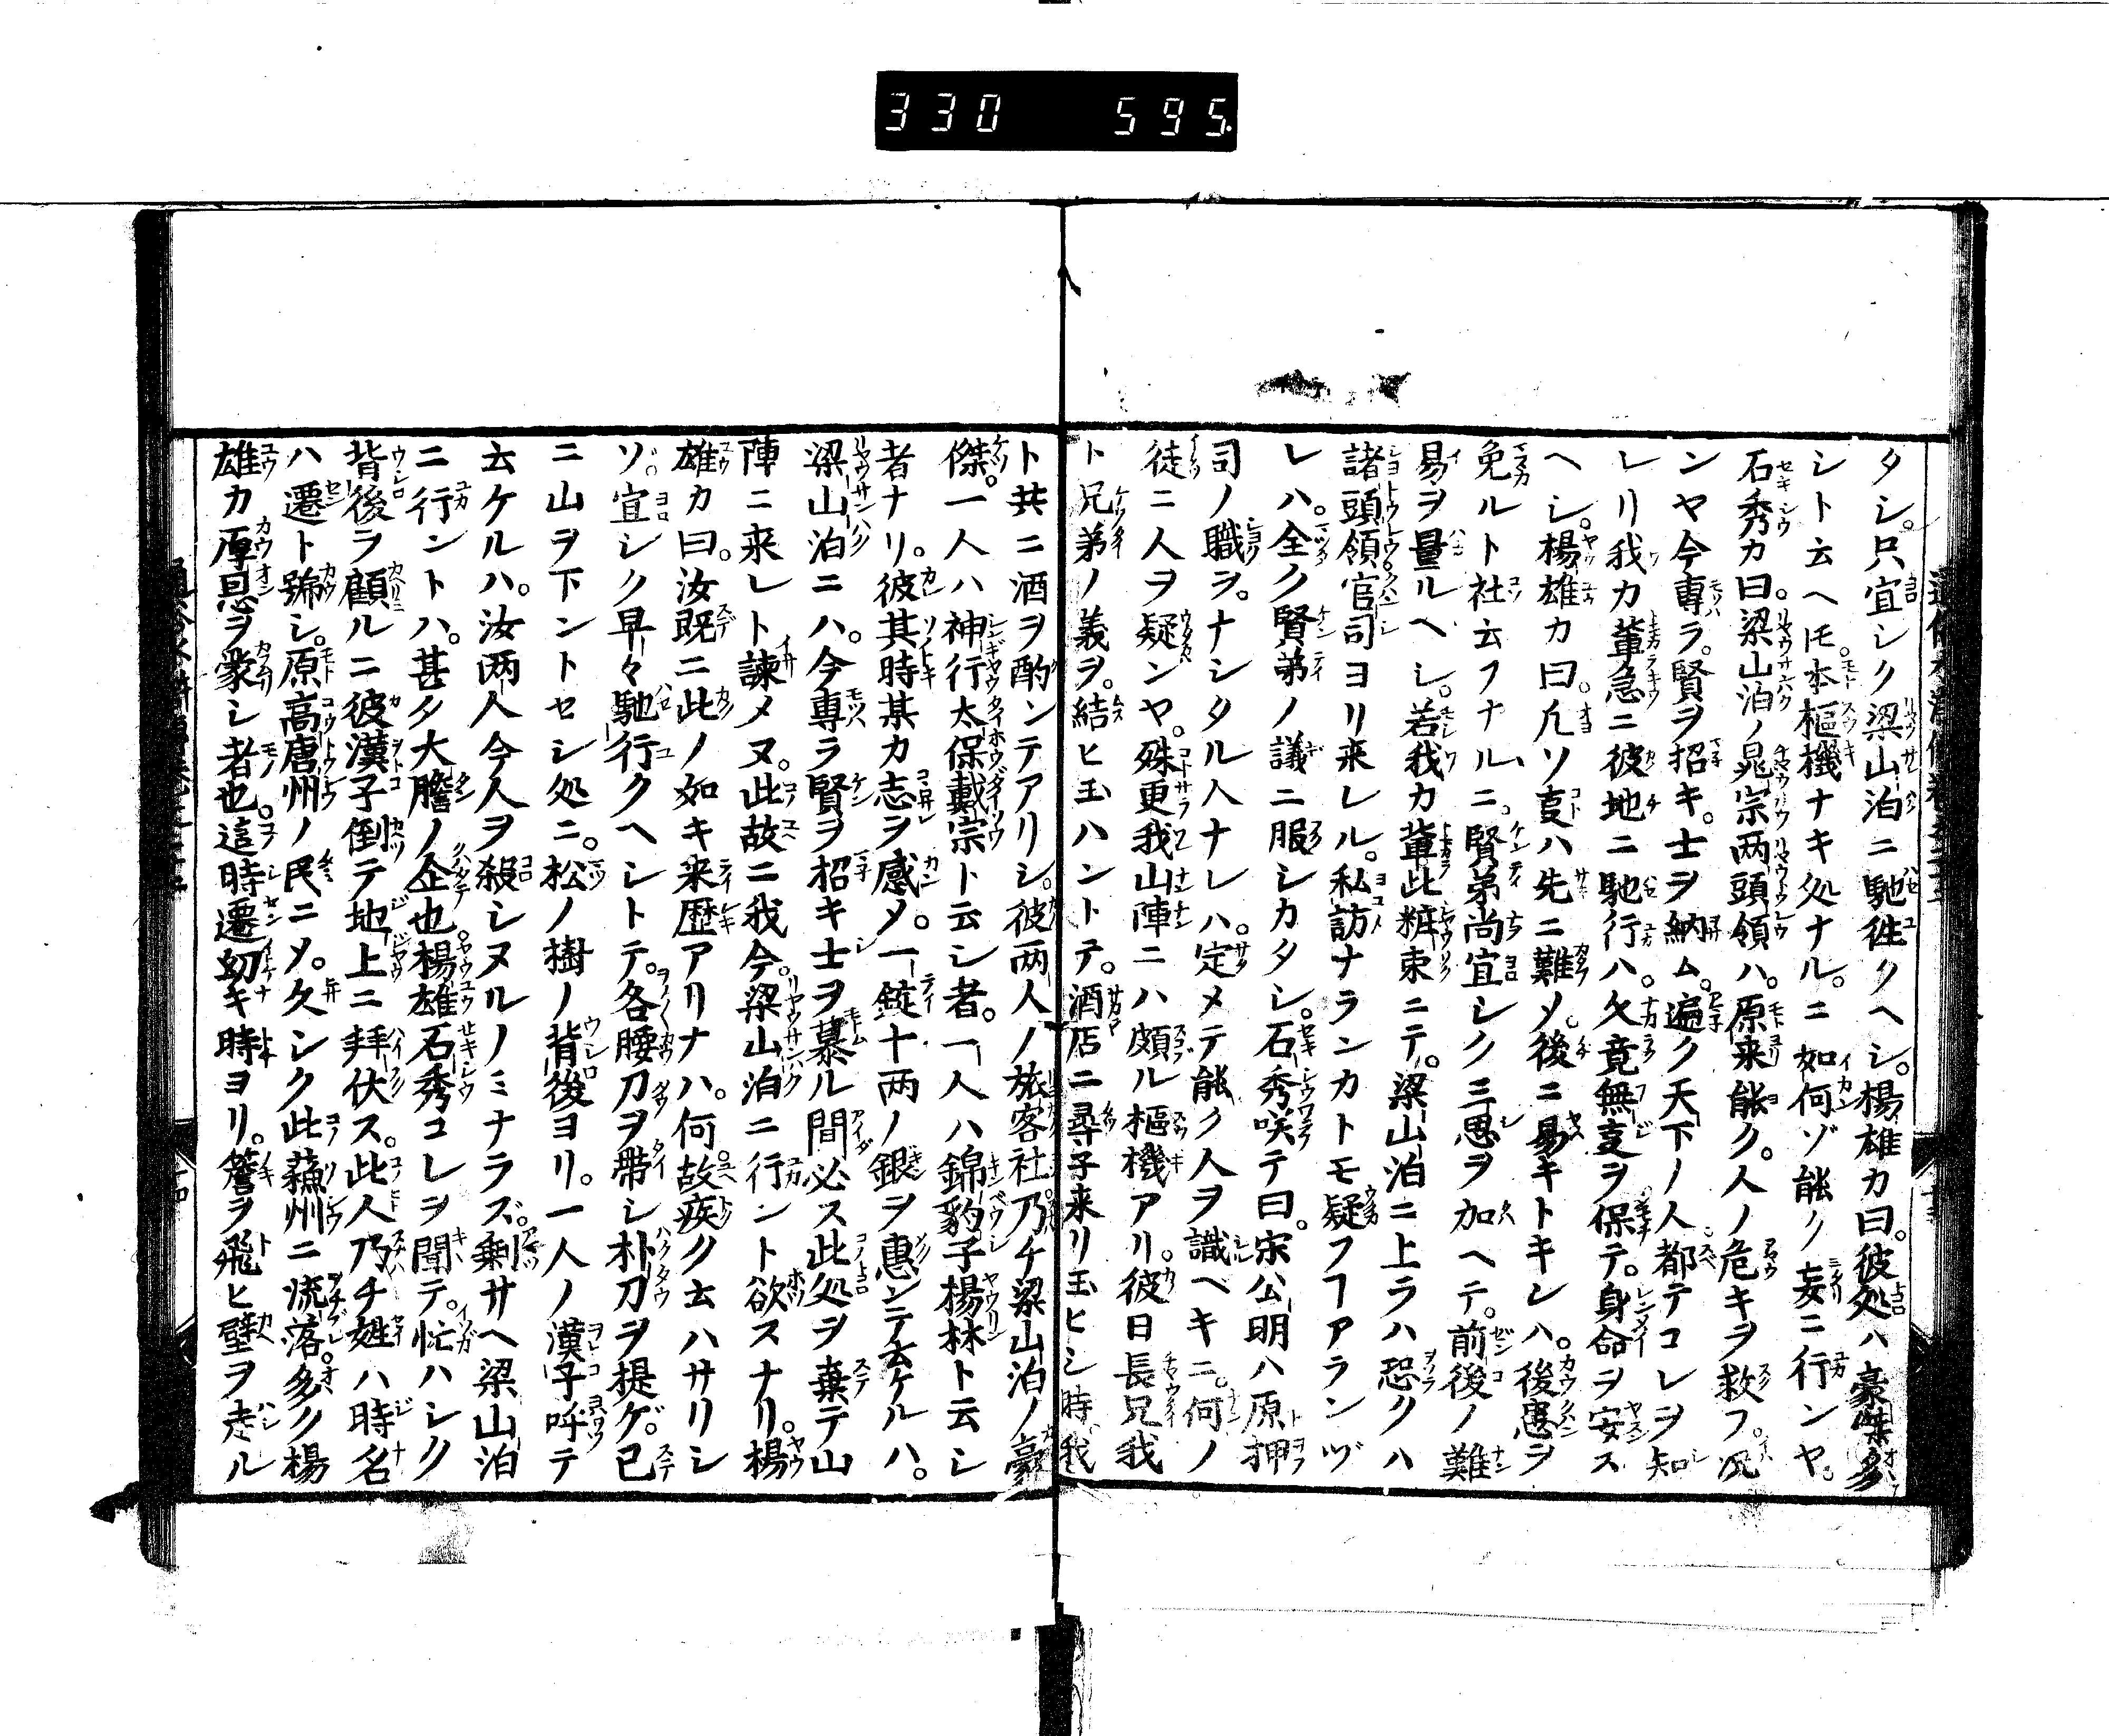 330 595
タシ。只宜シク梁山泊ニ馳徃クヘシ。楊雄カ曰。彼処ハ豪傑多
シト云ヘ𪜈。本枢機ナキ処ナル。ニ如何ゾ能ク妄ニ行ンヤ。
石秀カ曰。梁山泊ノ晁宗両頭領ハ。原来能ク。人ノ危キヲ救フ。况
ンヤ今専ラ。賢ヲ招キ。士ヲ納ム。遍ク天下ノ人都テコレヲ知
レリ我カ輩急ニ彼地ニ馳行ハ。久竟無叓ヲ保テ。身命ヲ安ス
ヘシ。楊雄カ曰。凢ソ叓ハ先ニ難メ。後ニ易キトキンハ。後患ヲ
免ルト社云フナルニ。賢弟尚宜シク三思ヲ加ヘテ。前後ノ難
易ヲ量ルヘシ。若我カ輩此粧束ニテ。梁山泊ニ上ラハ恐クハ
諸頭領官司ヨリ来レル。私訪ナランカトモ疑フヿアランヅ
レハ。全ク賢弟ノ議ニ服シカタシ。石秀咲テ曰。宋公明ハ原押
司ノ職ヲ。ナシタル人ナレハ。定メテ能ク人ヲ識ヘキニ。何ノ
徒ニ人ヲ疑ンヤ。殊更我山陣ニハ頗ル枢機アリ。彼日長兄我
ト兄弟ノ義ヲ。結ヒ玉ハントテ。酒店ニ尋子来リ玉ヒシ時我
ト共ニ酒ヲ酌ンテアリシ。彼両人ノ旅客社乃チ梁山泊ノ豪
傑。一人ハ神行太保戴宗ト云シ者。一人ハ錦豹子楊林ト云シ
者ナリ。彼其時某カ志ヲ感メ。一錠十両ノ銀ヲ惠ンテ云ケルハ。
梁山泊ニハ。今専ラ賢ヲ招キ士ヲ慕ル間必ス此処ヲ棄テ山
陣ニ来レト諫メヌ。此故ニ我今。梁山泊ニ行ント欲スナリ。楊
雄カ曰。汝既ニ此ノ如キ来歴アリナハ。何故疾ク云ハサリシ
ソ。宜シク早々馳行クヘシトテ。各腰刀ヲ帶シ朴刀ヲ提ゲ。已
ニ山ヲ下ントセシ処ニ。松ノ樹ノ背後ヨリ。一人ノ漢子呼テ
云ケルハ。汝両人今人ヲ殺シヌルノミナラズ。剰サヘ梁山泊
ニ行ントハ。甚タ大膽ノ企也。楊雄石秀コレヲ聞テ。忙ハシク
背後ヲ顧ルニ彼漢子倒テ地上ニ拜伏ス。此人乃チ姓ハ時名
ハ遷ト號シ。原高唐州ノ民ニメ。久シク此蘓州ニ流落。多ク楊
雄カ厚恩ヲ蒙シ者也。這時遷幼キ時ヨリ。簷ヲ飛ヒ壁ヲ走ル